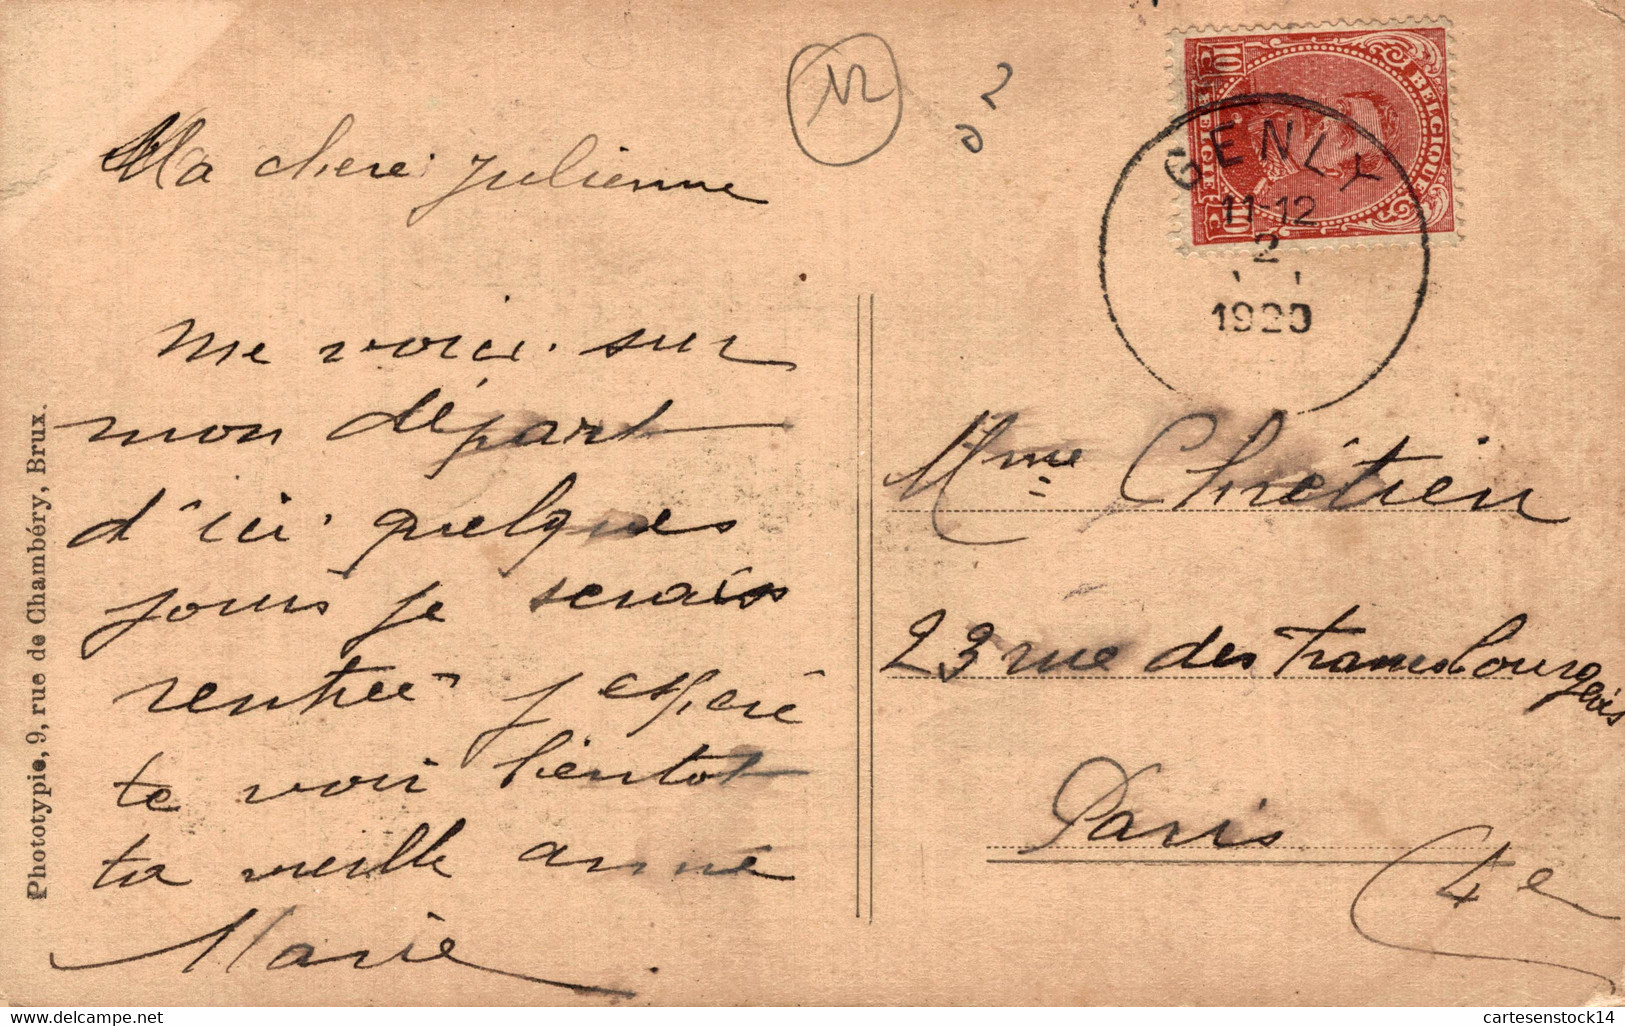 Ma chere Julienne
me voici sur
mon départ
d'ici quelques
jours je serais
rentrée j'espere
te voir bientot
ta vieille
Marie
Phototypie, 9, rue de Chambéry, Brux.
10 BELGIQUE
C BELGIE C
10
GENLY
11-12
2
1920
Mme Chrétien
23 rue des francsbourgeois
Paris
4e
www.delcampe.net
cartesenstock14